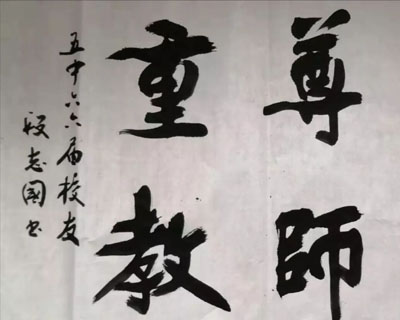 尊師
重教
五中六六届校友
殷志國书